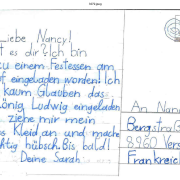 Liebe Nancy!
t es dir? Ich bin
zu einem Festessen ann
f eingeladen worden! Ich
kaum Glauben das
önig Ludwig eingeladen
ziehe mir mein
s Kleid an und mache
htig hübsch. Bis bald!
Deine Sarah
An Nanc
Bergstraß
8960 Vers
Frankreic